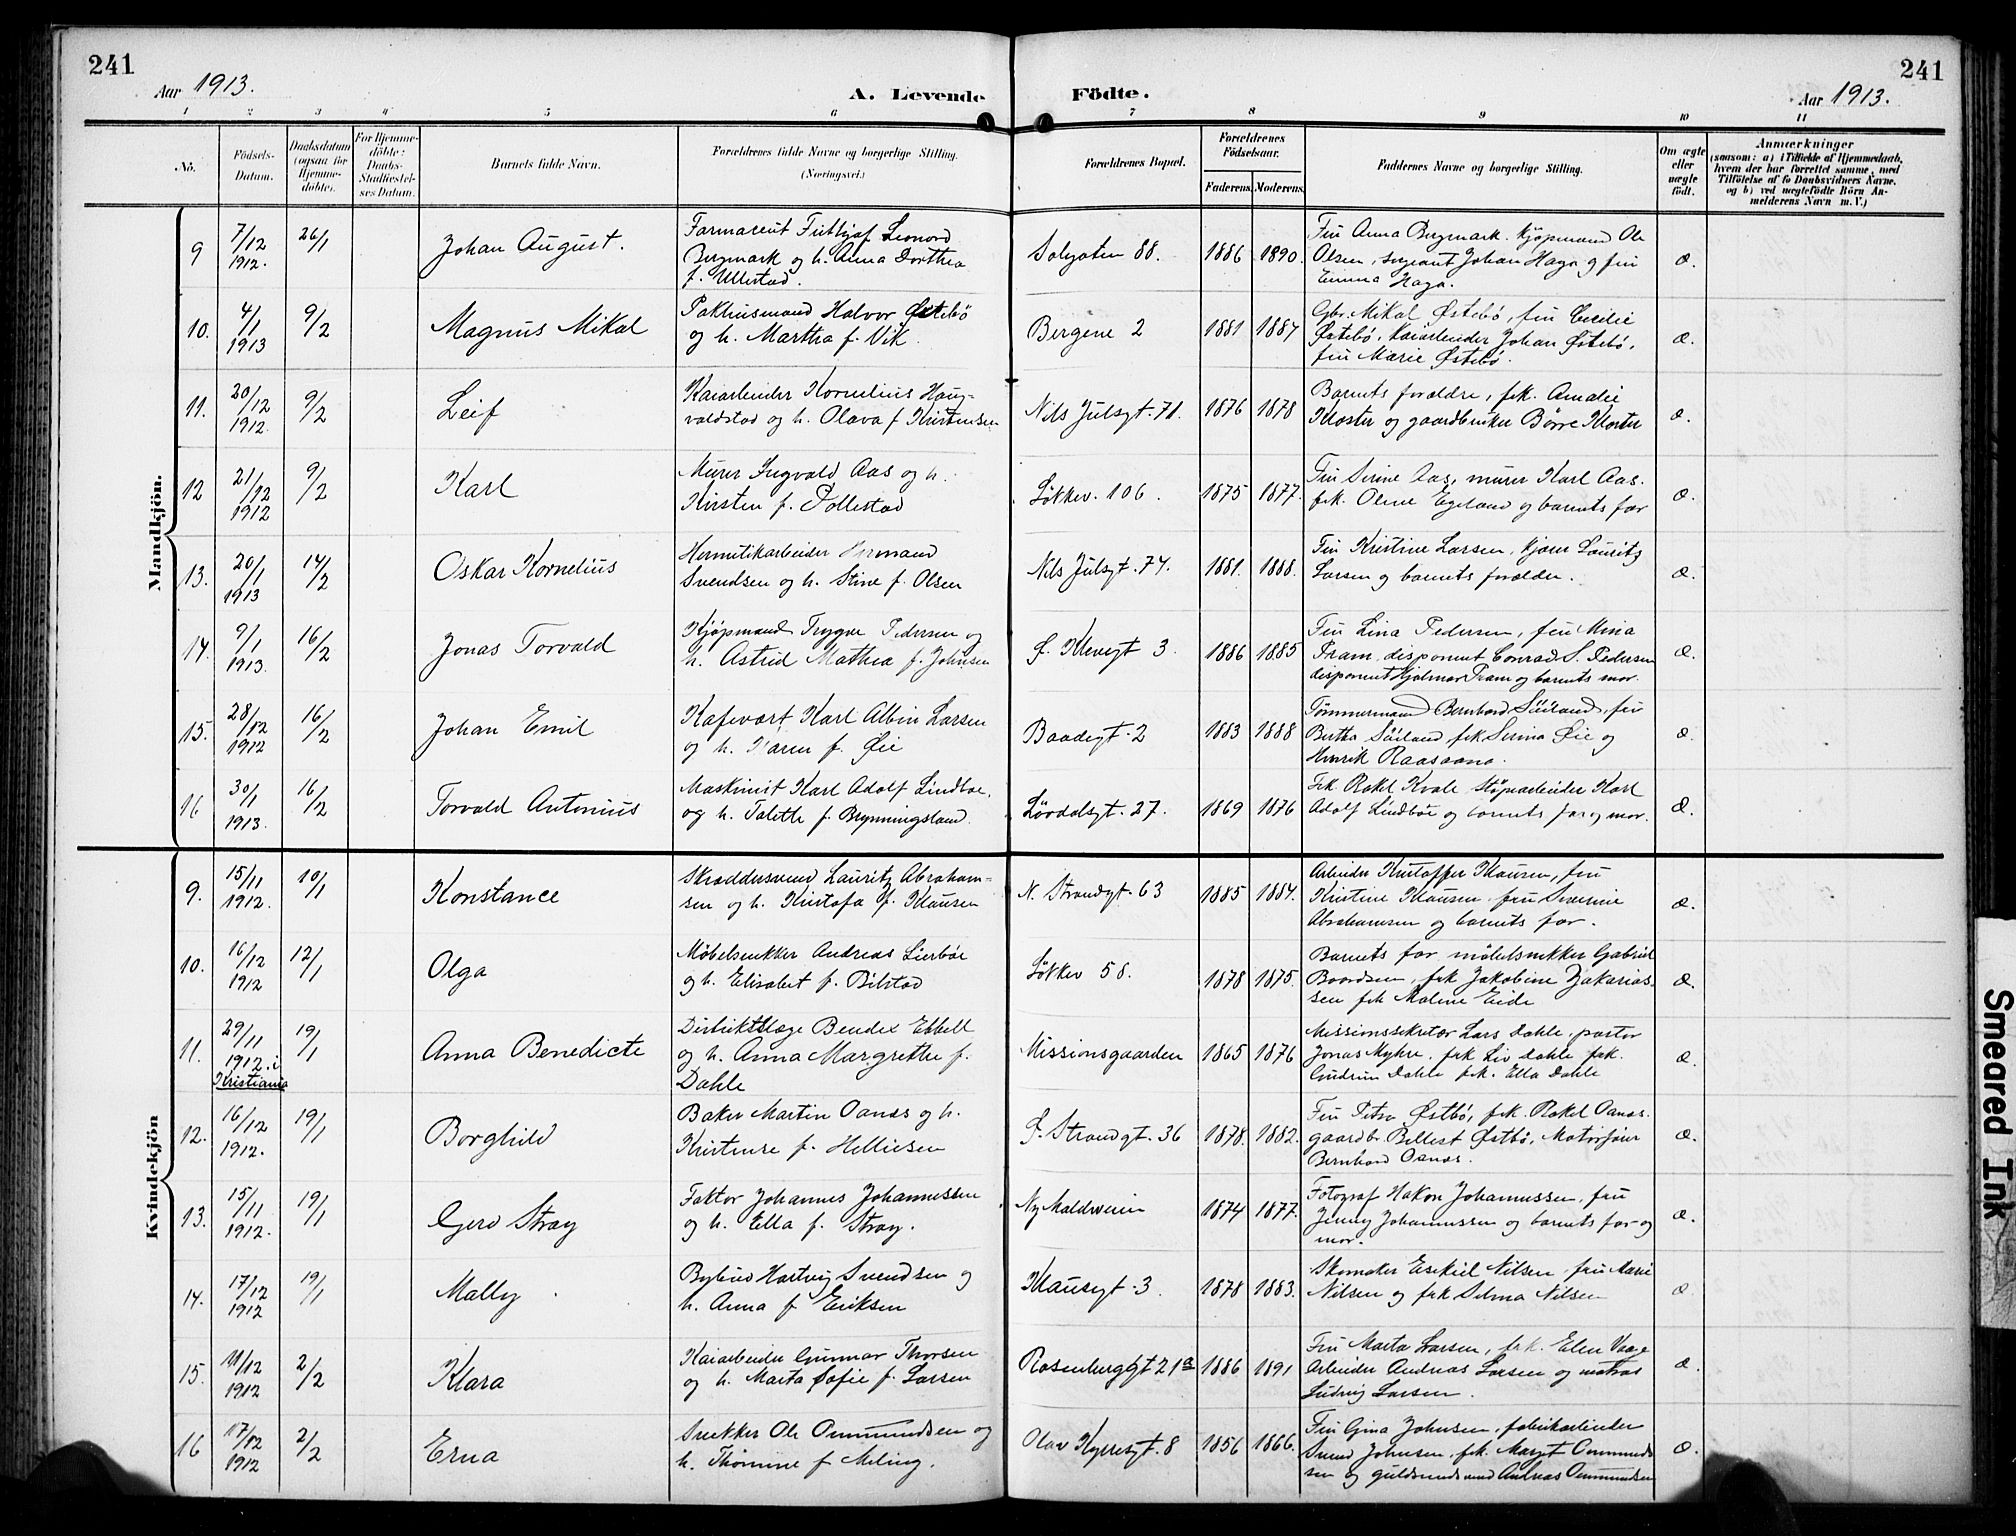 241
Aar 1913.
A. Levende
Födte.
241
Aar 1913.
1 2 3 4 5 6 7 8 9 10 11
No.
Födsels-Datum.
Daabsdatum (ogsaa for Hjemmedöbte).
For Hjemmedöbte: Daabs-Stadfæstelses Datum.
Barnets fulde Navn.
Forældrenes fulde Navne og borgerlige Stilling. (Næringsvei.)
Forældrenes Bopæl.
Forældrenes Födselsaar.
Faderens. Moderens.
Faddernes Navne og borgerlige Stilling.
Om ægte eller uægte födt.
Anmærkninger
(saasom: a) i Tilfælde af Hjemmedaab,
hvem der har forrettet samme, med
Tilföielse af to Daabsvidners Navne,
og b) ved uægtefödte Börn An-
melderens Navn m. V.)
Mandkjön.
9 7/12 1912. 26/1 Johan August.
Farmaceut Leonord
Bergmark og h. Anna Dorthea
f. Ullestad.
Solagaten 88. 1886 1890.
Fru Anna Bergmark. Kjøpmand Ole
Olsen, sergeant Johan Haga og fru
Emma Haga.
Æ.
10. 4/1 1913 9/2 Magnus Mikal
Pakhusmand Halvor Østebö
og h. Martha f. Vik.
Bergene 2 1881 1887
Gbr. Mikal Østebö, fru Cecilie
Østebö, Kaiarbeider Johan Østebö,
fru Marie Østebö.
Æ.
11. 20/12 1912. 9/2 Leif
Kaiarbeider Kornelius Haug-
valdstad og h. Olava f. Kristensen
Nils Julsgt. 71. 1876 1878
Barnets forældre, frk. Amalie
Kloster og gaardbruker Børre Kloster
Æ.
12 21/12 1912 9/2 Karl
Murer Ingvald Aas og h.
Kirsten f. Pollestad
Løkkev. 106. 1875 1877.
Fru Serine Aas, murer Karl Aas.
frk. Olene Egeland og barnets far
Æ.
13. 20/1 1913 14/2 Oskar Kornelius
Hermetikarbeider Hermand
Svendsen og h. Stine f. Olsen
Nils Julsgt. 74. 1881. 1888.
Fru Kristine Larsen, kjører Lauritz
Larsen og barnets forældre.
Æ.
14. 9/1 1913. 16/2 Jonas Torvald
Kjøpmand Trygve Pedersen og
h. Astrid Mathea f. Johnsen
Ø. Klevegt 3. 1886 1885
Fru Lina Pedersen, fru Mina
Pram, disponent Conrad S. Pedersen
disponent Hjalmar Pram og barnets mor.
Æ.
15. 28/12 1912 16/2 Johan Emil
Kafevært Karl Albin Larsen
og h. Karen f. Øie
Baadegt. 2 1883 1888
Tömmermand Bernhard Süiland, fru
Bertha Süiland frk Serina Øie og
Henrik Raasaana.
Æ.
16 30/1 1913. 16/2 Torvald Antonius
Maskinist Karl Adolf Lindboe.
og h. Talette f. Brynningsland.
Løvdalsgt. 27. 1869 1876
Frk Rakel Kvale Støperarbeider Karl
Adolf Lindböe og barnets far og mor.
Æ.
Kvindekjön
9. 15/11 1912. 10/1 Konstance
Skræddersvend Lauritz Abraham-
sen og h. Kristofa f. Klausen
N. Strandgt. 63 1885 1884.
Arbeider Kristoffer Klausen, fru
Kristine Klausen, fru Severine
Abrahamsen og barnets far.
Æ.
10. 16/12 1912 12/1 Olga
Møbelsnekker Andreas Lierböe
og h. Elisabet f. Bilstad
Løkkev 58. 1878 1875.
Barnets far møbelsnekker Gabriel
Baardsen, frk Jakobine Zakarias-
sen frk Malene Eide
Æ.
11. 29/11 1912. i Kristiania 19/1 Anna Benedicte
Distriktslæge Bendix Ebbell
og h. Anna Margrethe f.
Dahle
Missionsgaarden 1865 1876
Missionssekretær Lars Dahle, pastor
Jonas Myhre. frk Liv Dahle frk.
Gudrun Dahle frk. Ella Dahle
Æ.
12. 16/12 1912. 19/1 Borghild
Baker Martin Oanæs og h.
Kristense f. Helliesen
Ø. Strandgt. 36 1878. 1882.
Fru Petra Østbö, frk. Rakel Oanæs.
gaardb. Østbö. Motorfører
Bernhard Oanæs.
Æ.
13. 15/11 1912. 19/1 Gerd Stray
Faktor Johannes Johannessen
og h. Ella f. Stray.
Ny Maldeveien 1874 1877.
Fotograf Hakon Johannessen, fru
Jenny Johannessen og barnets far og
mor.
Æ.
14. 17/12 1912 19/1 Mally
Bybud Hartvig Svendsen og
h. Anna f Eriksen
Klausgt. 3. 1878 1883.
Skomaker Esekiel Nilsen, fru Marie
Nilsen og frk Selma Nilsen
Æ.
15. 11/12 1912 2/2 Klara
Kaiarbeider Gunnar Thorsen
og h. Marta Sofie f. Larsen
Rosenberggt 21a 1886 1891
Fru Marta Larsen, frk. Elen Vaage
Arbeider Andreas Larsen og matros
Ludvig Larsen.
Æ.
16 17/12 1912 2/2 Erna
Snekker Ole Ommundsen og
h. Thomine f Meling.
Olav Kyrresgt. 8 1856 1866.
Fru Gina Johnsen, fabrikarbeider
Svend Johnsen, frk. Margt Ommund-
sen og guldsmedsvend Andreas Ommundsen
Æ.
Smeared Ink